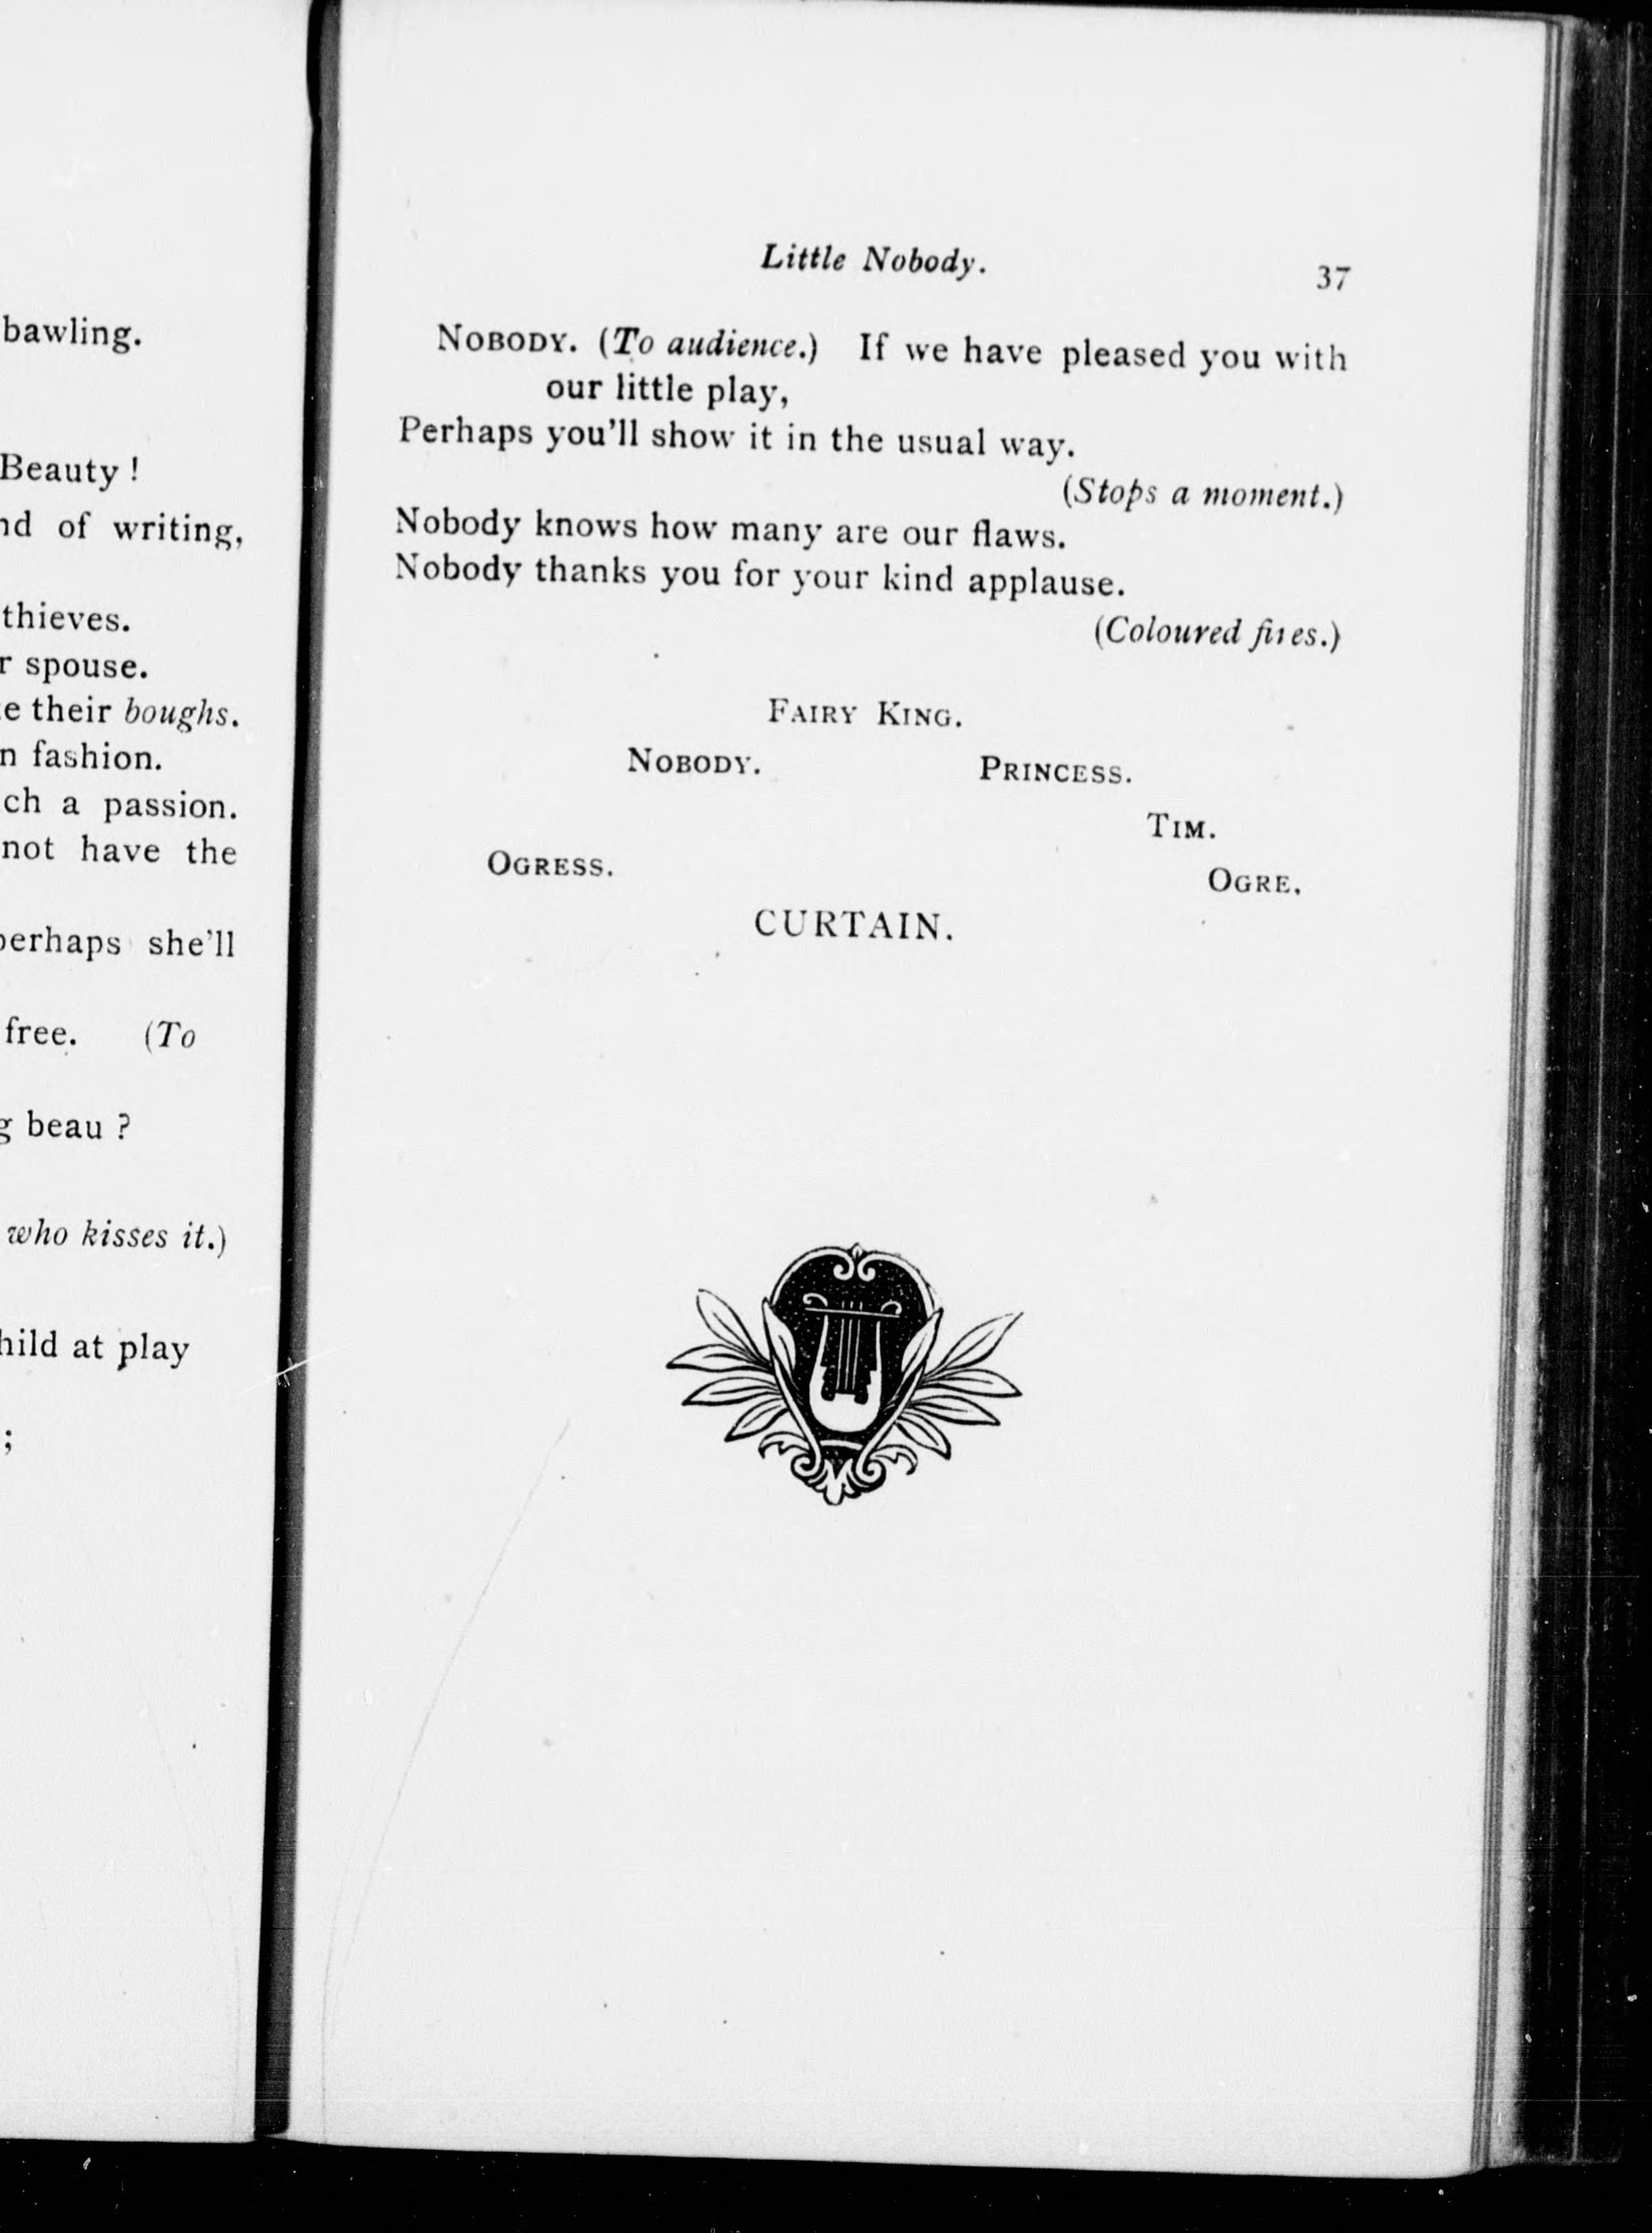 bawling.
Beauty !
of writing,
thieves.
spouse.
their boughs.
fashion.
a passion.
not have the
perhaps she'll
free. (To
beau ?
who kisses it.)
at play
;
Little Nobody. 37
NOBODY. (To audience.) If we have pleased you with
our little play,
Perhaps you'll show it in the usual way.
(Stops a moment.)
Nobody knows how many are our flaws.
Nobody thanks you for your kind applause.
(Coloured fires.)
FAIRY KING.
NOBODY. PRINCESS.
TIM.
OGRESS. OGRE.
CURTAIN.